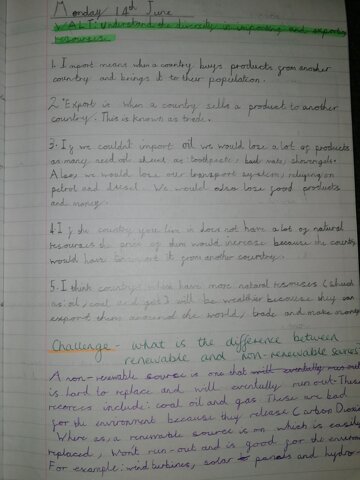 Monday 14th June
WALT: Understand the diversity in importing and exporting
resources.
1. Import means when a country buys products from another
country and brings it to their population.
2. Export is when a country sells a product to another
country. This is known as trade.
3. If we couldn't import oil we would lose a lot of products
as many need oil such as: toothpaste,
Also, we would lose our transport system, relying on
petrol and diesel. We would also lose good products
and money.
4. If the country you live in does not have a lot of natural
resources the price of them would increase because the country
would have to import it from another country.
5. I think countries which have more natural resources (such
as: oil, coal and gas) will be wealthier because they can
export them around the world, trade and make money
Challenge - what is the difference between
renewable and non-renewable
A non-renewable source is one that will eventually run out
is hard to replace and will eventually run out. These
include: coal oil and gas. These are bad
for the environment because they release Carbon Dioxide
Where as, a renewable source is on which is easily
replaced, won't run-out and is good for the
For example: wind turbines, solar panels and hydro-